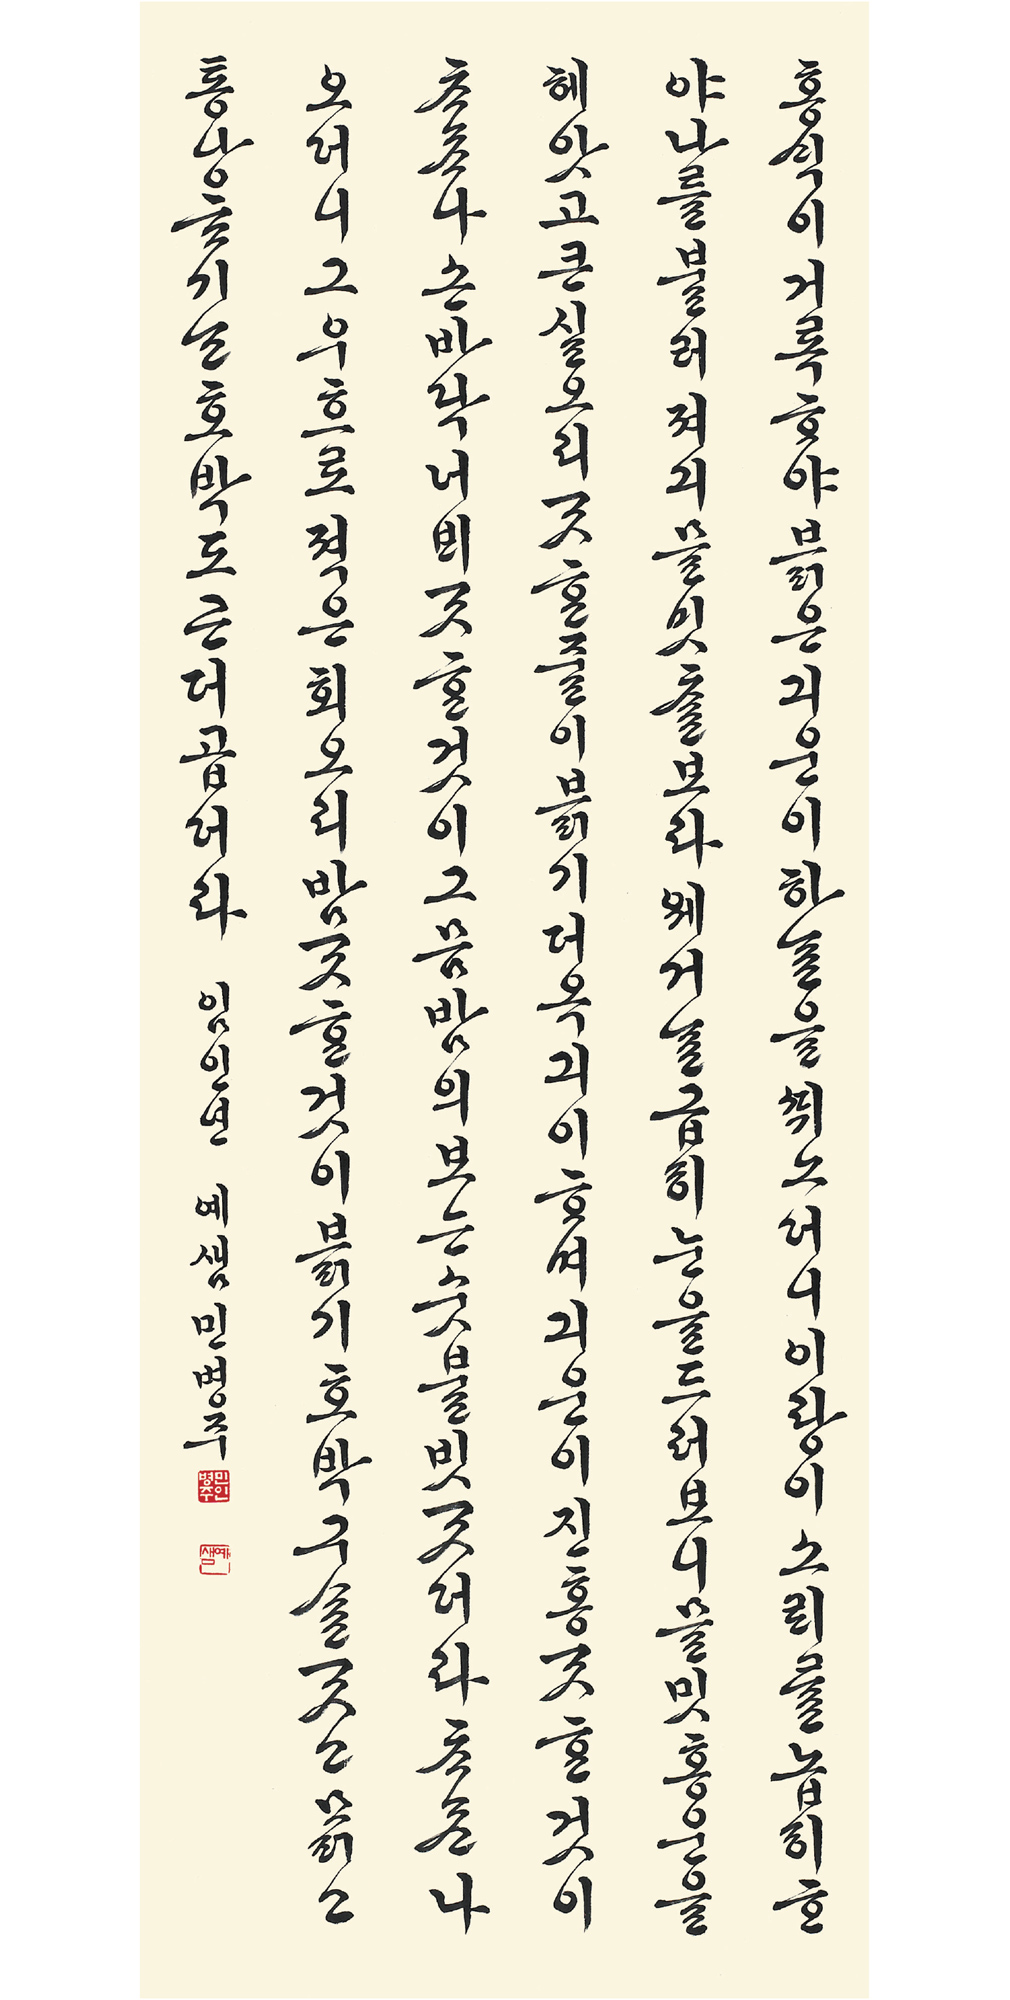 홍ᄉᆡᆨ이거록ᄒᆞ야븕은긔운이하ᄂᆞᆯ을ᄯᅱ노더니이랑이소ᄅᆡᄅᆞᆯ놉히ᄒᆞ
야나ᄅᆞᆯ불러져긔믈밋ᄎᆞᆯ보라웨거ᄂᆞᆯ급히눈을드러보니믈밋홍운을
헤앗고큰실오리ᄀᆞᆺᄒᆞᆫ줄이븕기더옥긔이ᄒᆞ며긔운이진홍ᄀᆞᆺᄒᆞᆫ것이
ᄎᆞᄎᆞ나손바닥너ᄇᆡᄀᆞᆺᄒᆞᆫ것이그믐밤의보ᄂᆞᆫ숫불빗ᄀᆞᆺ더라ᄎᆞᄎᆞ나
오더니그우흐로젹은회오리밤ᄀᆞᆺᄒᆞᆫ것이븕기호박구슬ᄀᆞᆺ고ᄆᆞᆰ고
통낭ᄒᆞ기ᄂᆞᆫ호박도곤더곱더라 임인년 예샘민병주
민인병주
예샘